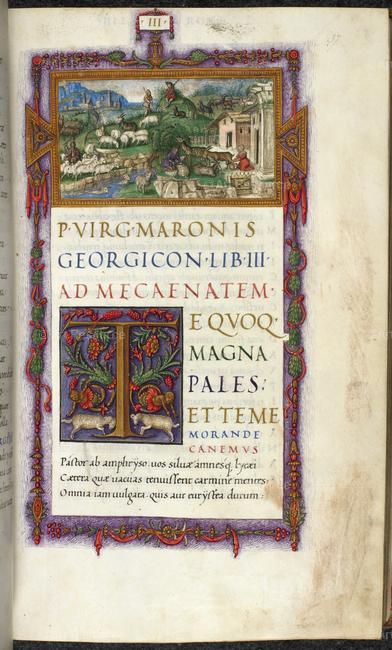 III
P·VIRG·MARONIS
GEORGICON·LIB·III·
AD MECAENATEM·
TE QVOQ·
MAGNA
PALES·
ET TE ME
MORANDE
CANEMVS
Pastor ab amphryso. uos siluæ amnesq; lycæi
Cætera quæ uacuas tenuissent carmine mentes:
Omnia iam uulgata. quis aut eurystea durum: